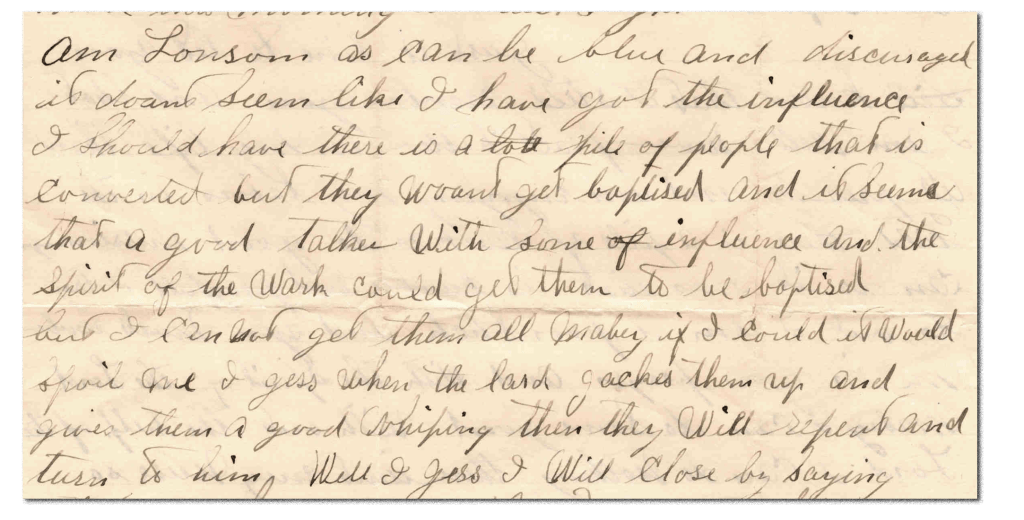 am Lonsom as can be blue and discuraged
it doant seem like I have got the influence
I should have there is a lott pile of people that is
converted but they woant get baptised and it seems
that a good talker With some of influence and. the
spirit of the Wark could get them to be baptised
but I can not get them all maby if I could it Would
spoil me I gess when the lard jackes them up and
gives them a good Whiping then they Will repent and
turn to him, Well I gess I Will Close by saying